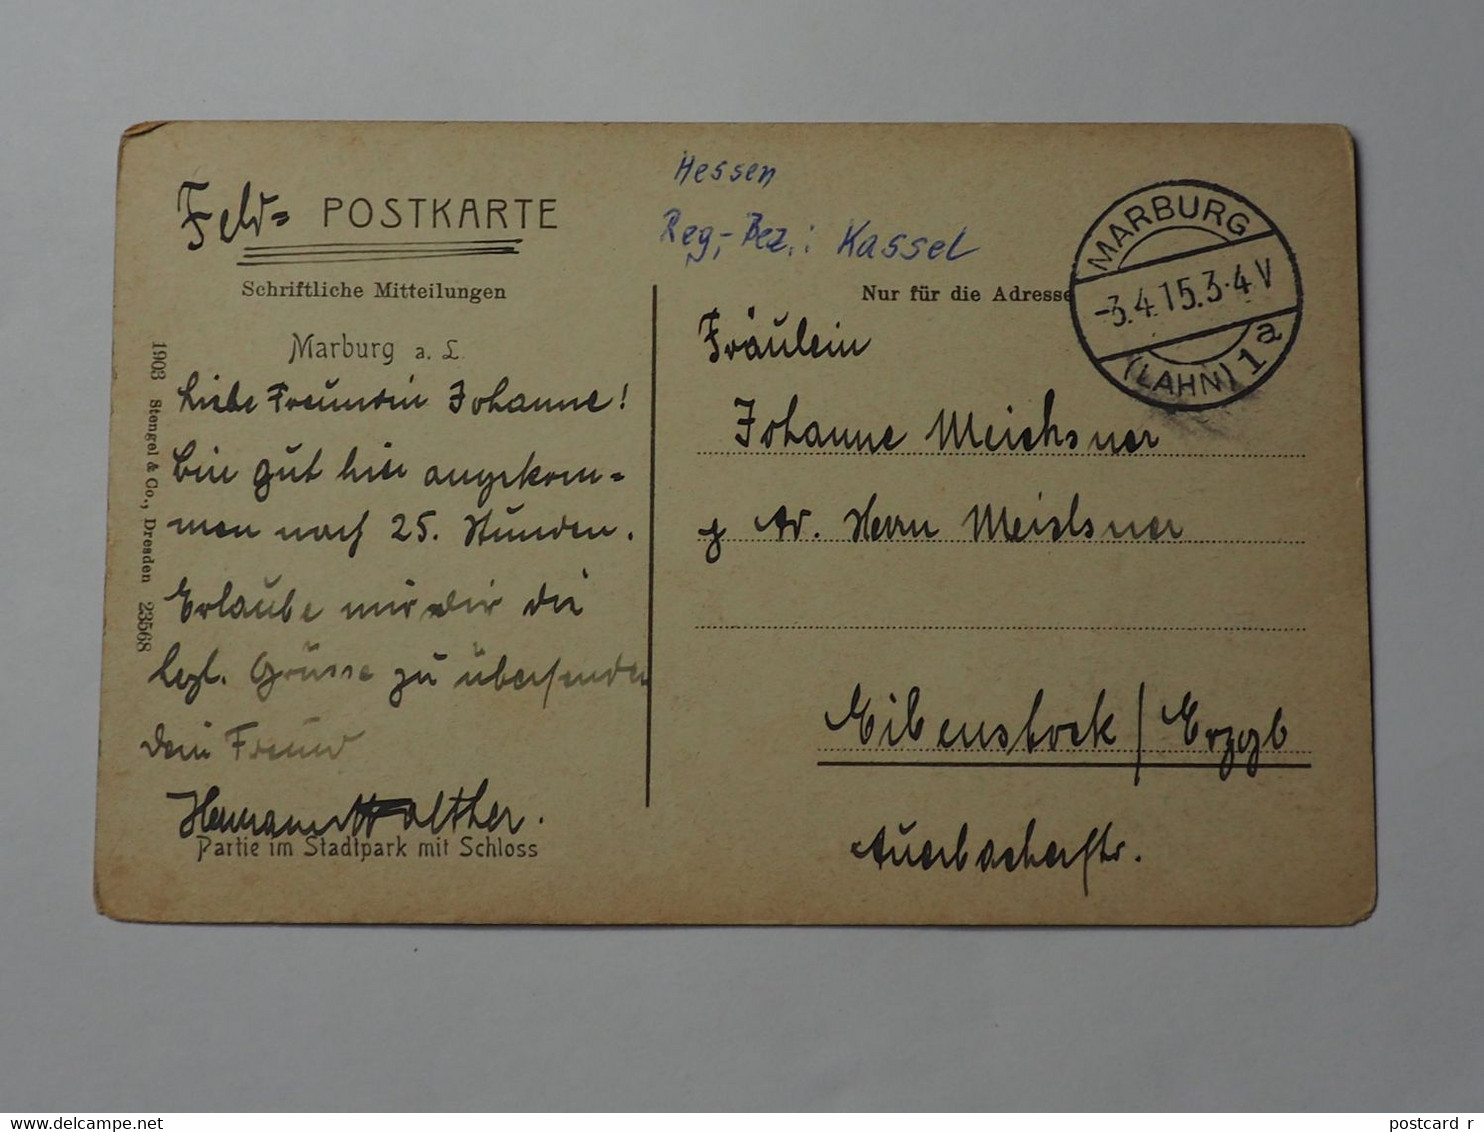 Feld= POSTKARTE
Schriftliche Mitteilungen
Marburg a. L.
Liebe Freundin Johanne!
bin gut hier angekom=
men nach 25. Stunden.
Erlaube mir dir die
hrzl. Grüsse zu übersenden
dein Freund
Hermann Walther.
Partie im Stadtpark mit Schloss
1903 Stengel & Co., Dresden 23568
Hessen
Reg.-Bez.: Kassel
Nur für die Adresse
MARBURG
-3.4.15.3-4V
(LAHN) 1a
Fräulein
Johanne Meichsner
Ad. Herrn Meichsner
Eibenstock / Erzgb
Auerbacherstr.
www.delcampe.net
postcard r